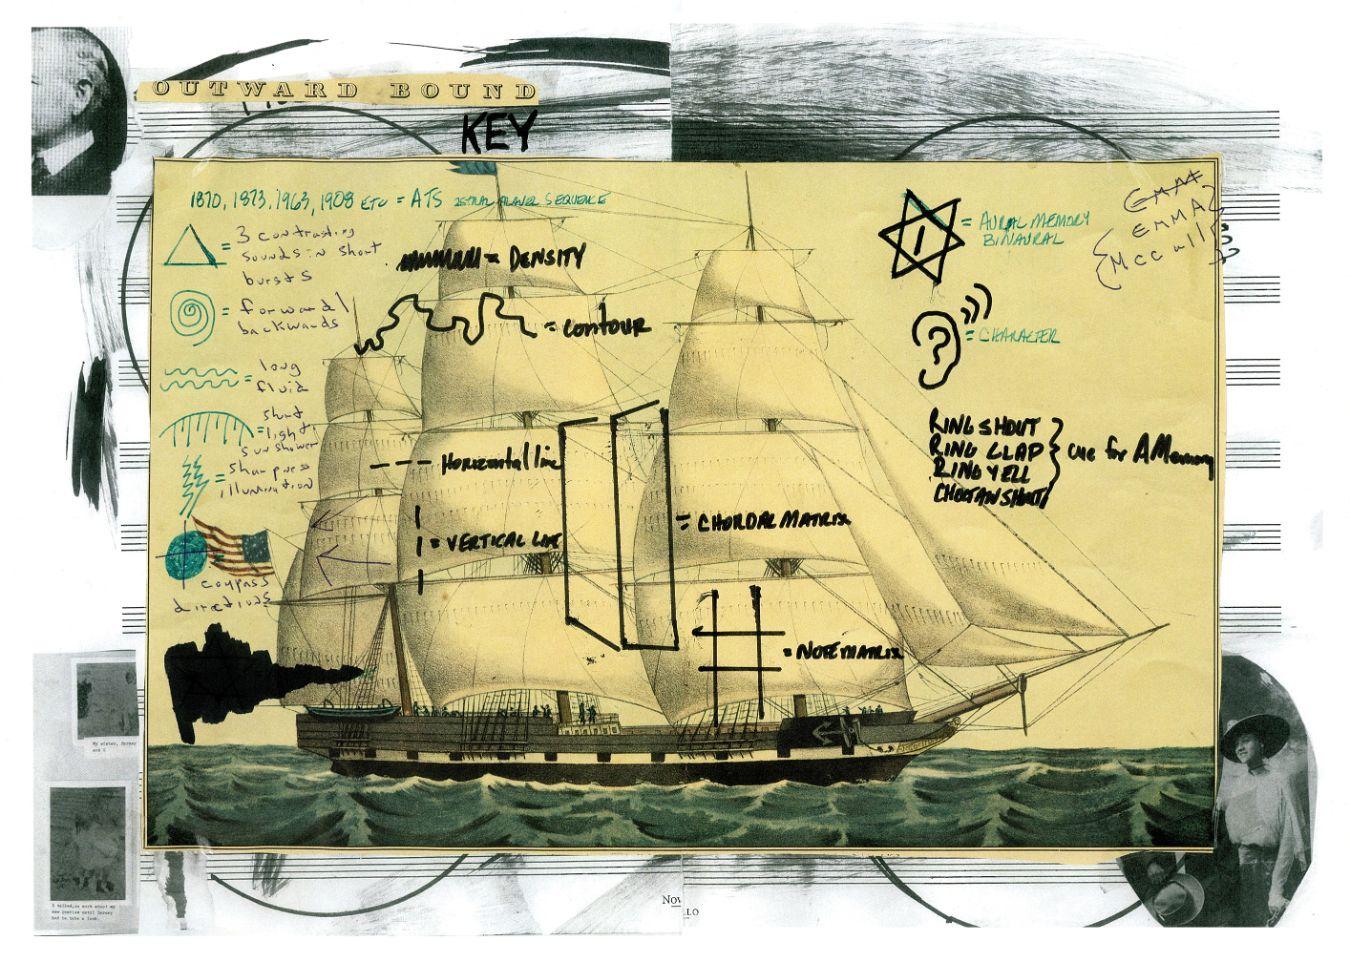 OUTWARD BOUND
KEY
1870, 1873, 1963, 1908 etc = ATS ASTRAL TRAVEL SEQUENCE
= 3 contrasting
sounds in short
bursts
= forward/
backwards
= long
fluid
= short
light,
sunshower
= sharpness
illumination
compass
directions
= DENSITY
= Contour
Horizontal line
= VERTICAL LINE
= CHORDAL MATRIX
= NOTE MATRIX
1
= AURAL MEMORY
BINAURAL
= CHARACTER
EMMA
McCall
RING SHOUT
RING CLAP
RING YELL
CHOCTAW SHOUT
cue for A Memory
My sister, Dorsey
and I
Nov
LLO